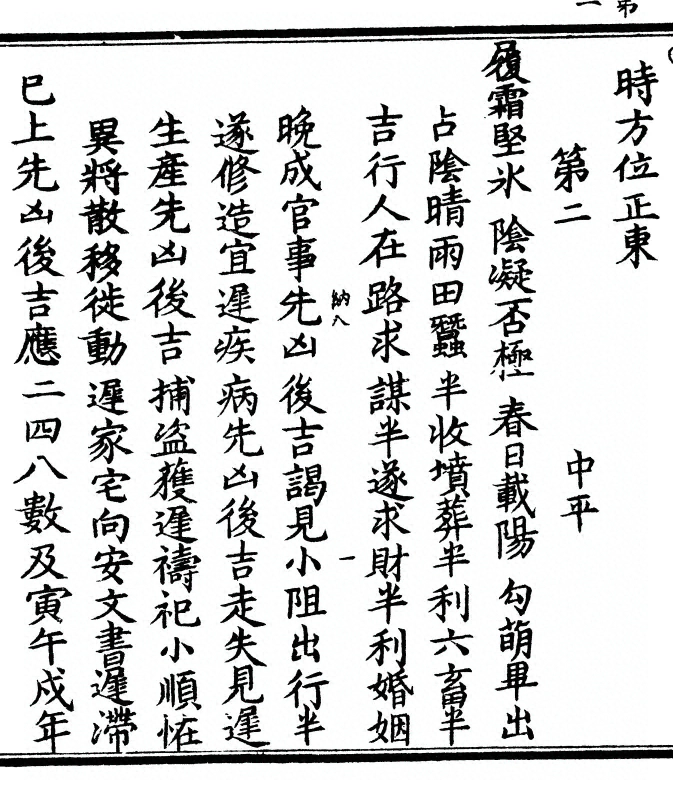 時方位正東
第二 中平
履霜堅氷 陰凝否極 春日載陽 勾萌畢出
占陰晴雨田蠶半收墳葬半利六畜半
吉行人在路求謀半遂求財半利婚姻
晚成官事先凶後吉謁見小阻出行半
納入
遂修造宜遲疾病先凶後吉走失見遲
生產先凶後吉捕盜獲遲禱祀小順恠
異將散移徙動遲家宅向安文書遲滯
巳上先凶後吉應二四八數及寅午戌年